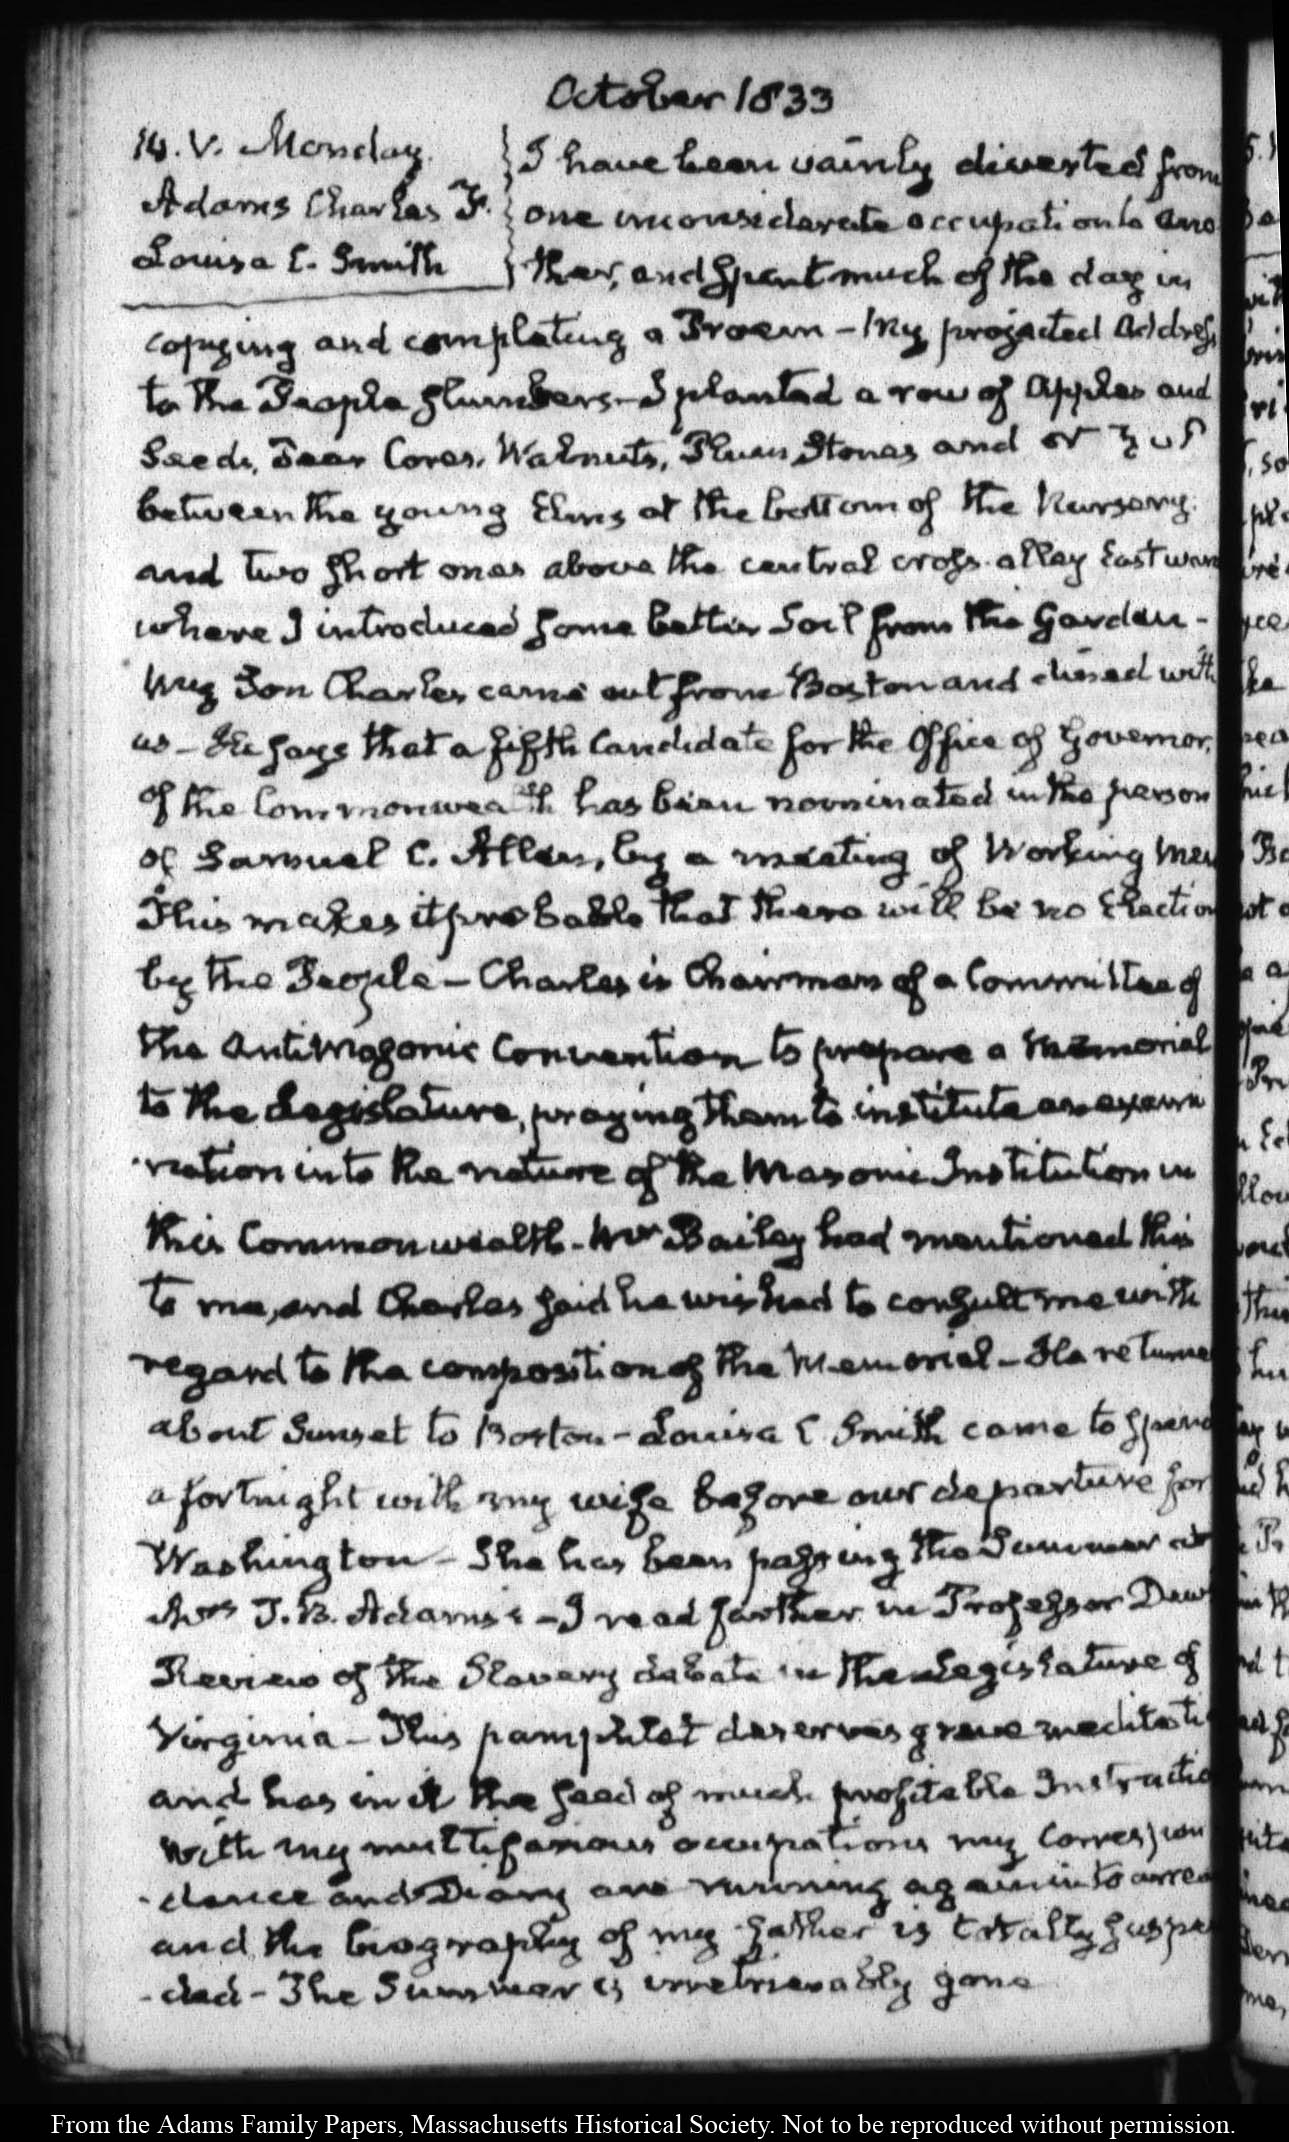 October 1833
14. V. Monday.
Adams Charles F.
Louisa C. Smith
I have been vainly diverted from
one inconsiderate occupation to ano
ther, and spent much of the day in
copying and completing a Proem – My projected Address
to the People slumbers – I planted a row of Apples and
Seeds, Pear Cores, Walnuts, Plum Stones and
between the young Elms at the bottom of the Nursery.
and two short ones above the central cross-alley Eastward
where I introduced some better Soil from the Garden –
My Son Charles came out from Boston and dined with
us – He says that a fifth Candidate for the Office of Governor
of the Commonwealth has been nominated in the person
of Samuel C. Allen, by a meeting of Working Men
This makes it probable that there will be no Election
by the People – Charles is Chairman of a Committee of
the Antimasonic Convention to prepare a Memorial
to the Legislature, praying them to institute an exami
nation into the nature of the Masonic Institution in
this Commonwealth – Mr Bailey had mentioned this
to me, and Charles said he wished to consult me with
regard to the composition of the Memorial – He returned
about Sunset to Boston – Louisa C. Smith came to spend
a fortnight with my wife before our departure for
Washington – She has been passing the Summer at
Mrs T. B. Adams's – I read further in Professor Dew
Review of the Slavery debate in the Legislature of
Virginia – This pamphlet deserves grave meditati
and has in it the seed of much profitable Instructio
With my multifarious occupations my Correspon
-dence and Diary are running again into arrea
and the biography of my father is totally suspe
-ded – The Summer is irretrievably gone
From the Adams Family Papers, Massachusetts Historical Society. Not to be reproduced without permission.